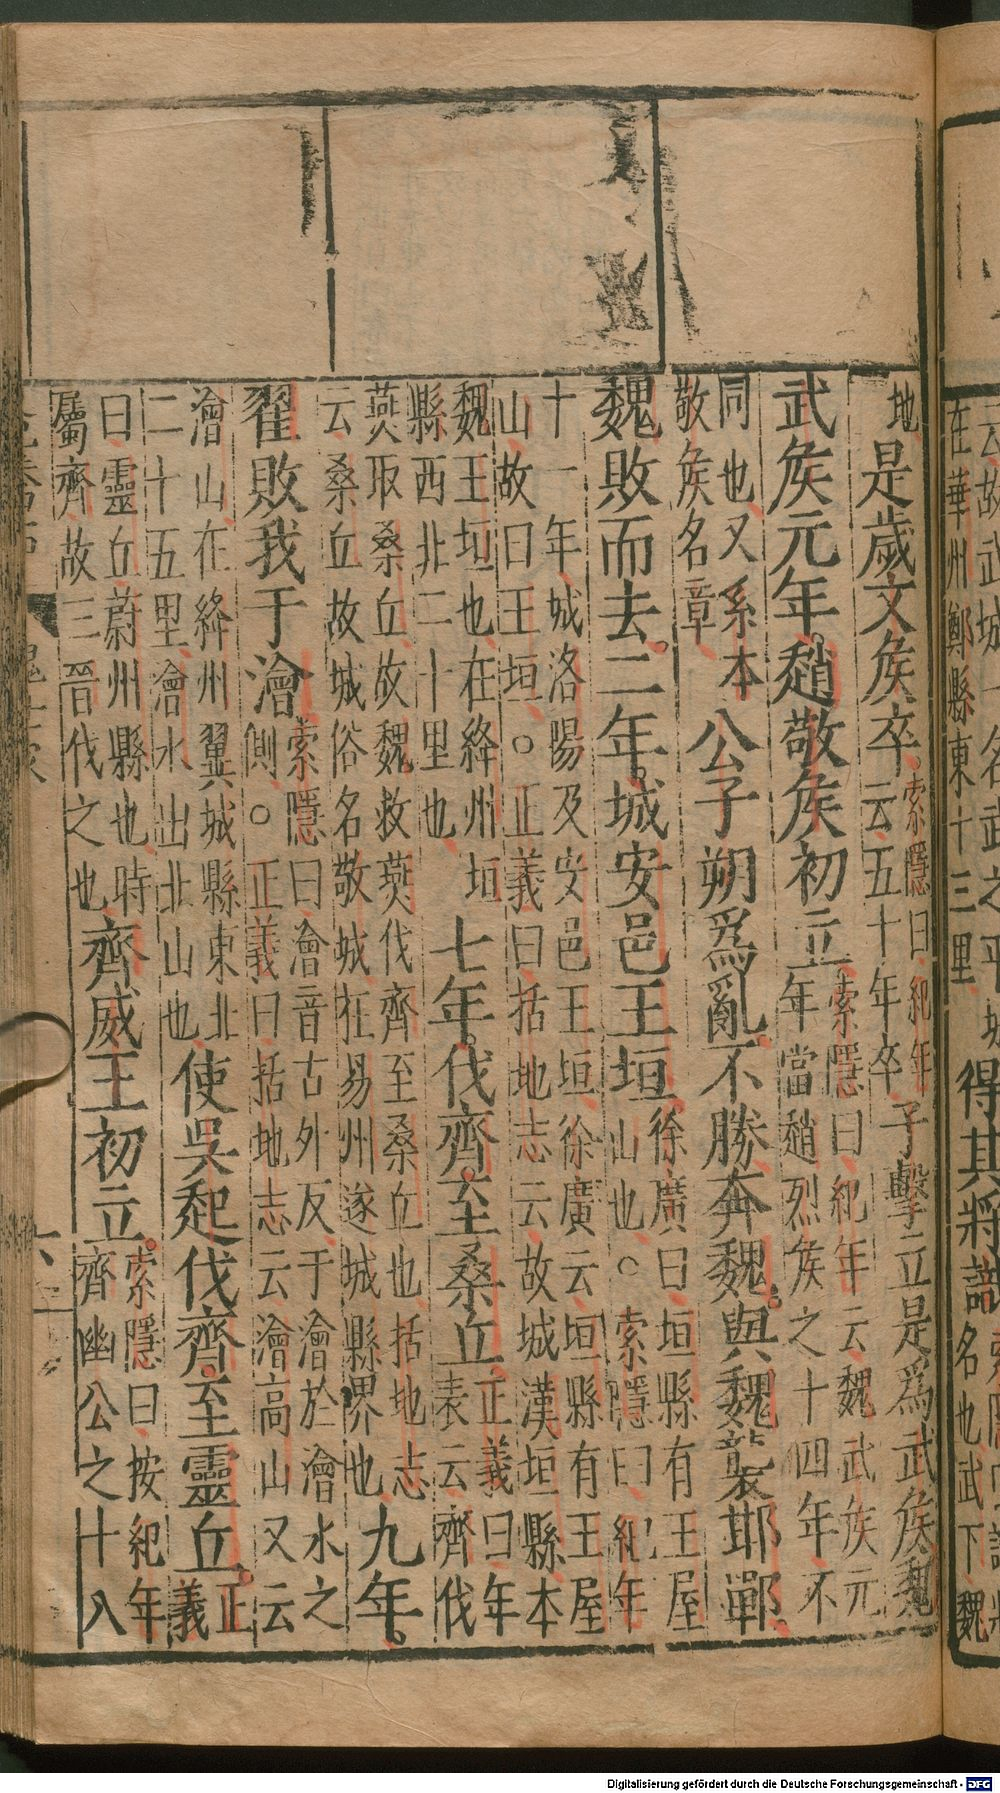 云故武城一名武之平城得其將識索隱曰識將
在華州鄭縣東十三里名也武下魏
地是歲文矦卒索隱曰紀年子擊立是爲武矦魏
云五十年卒
武矦元年趙敬矦初立索隱曰紀年云魏武矦元
年當趙烈矦之十四年不
同也又系本公子朔爲亂不勝奔魏與魏襲邯鄲
敬矦名章
魏敗而去二年城安邑王垣徐廣曰垣縣有王屋
山也○索隱曰紀年
十一年城洛陽及安邑王垣徐廣云垣縣有王屋
山故曰王垣○正義曰括地志云故城漢垣縣本
魏王垣也在絳州垣七年伐齊至桑丘正義曰年
縣西北二十里也表云齊伐
燕取桑丘故魏救燕伐齊至桑丘也括地志
云桑丘故城俗名敬城在易州遂城縣界也九年
翟敗我于澮索隱曰澮音古外反于澮於澮水之
側○正義曰括地志云澮高山又云
澮山在絳州翼城縣東北使吳起伐齊至靈丘正
二十五里澮水出北山也義
曰靈丘蔚州縣也時齊威王初立索隱曰按紀年
屬齊故三晉伐之也齊幽公之十八
Digitalisierung gefördert durch die Deutsche Forschungsgemeinschaft - DFG